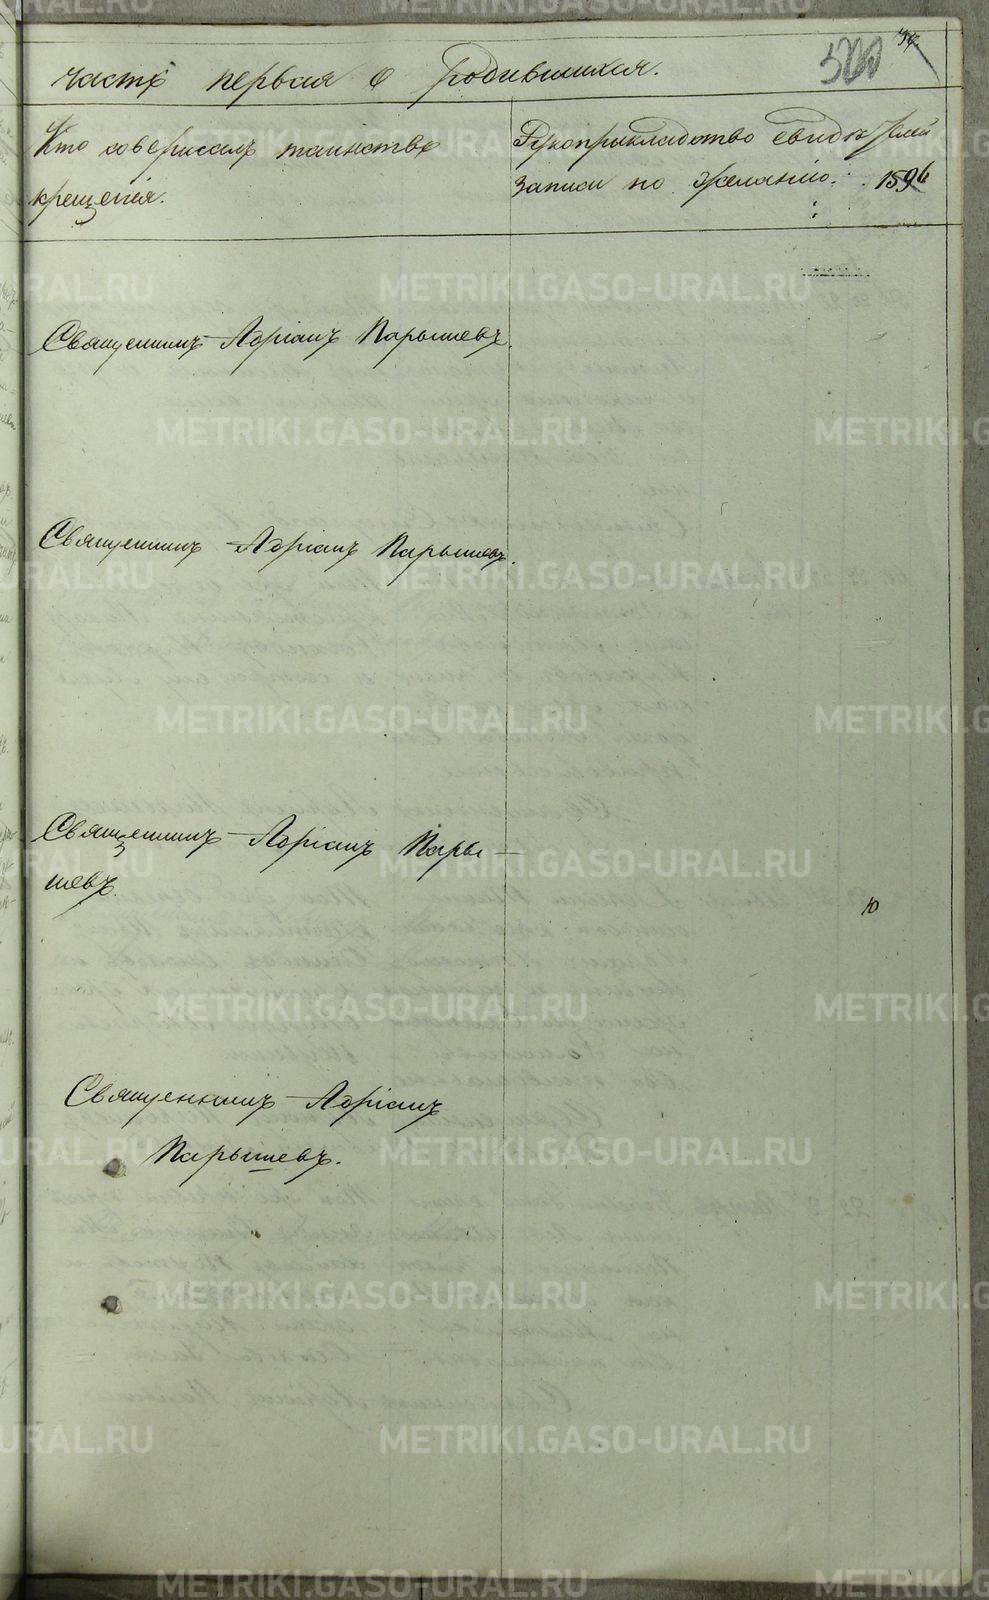 часть первая о родившихся.
Кто совершалъ таинство
крещенія.
Рукоприкладство свидѣтелей
записи по желанію.
1596
Священникъ Адріанъ Парышевъ.
Священникъ Адріанъ Парышевъ.
Священникъ Адріанъ Пары-
шевъ.
Священникъ Адріанъ
Парышевъ.
METRIKI.GASO-URAL.RU